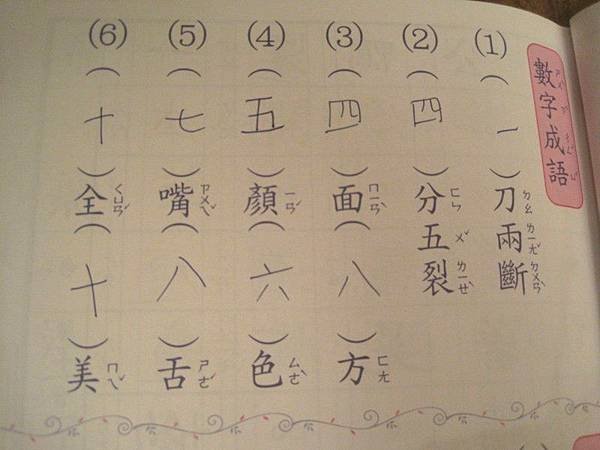 數字成語
(1)(一)刀兩斷
(2)(四)分五裂
(3)(四)面(八)方
(4)(五)顏(六)色
(5)(七)嘴(八)舌
(6)(十)全(十)美